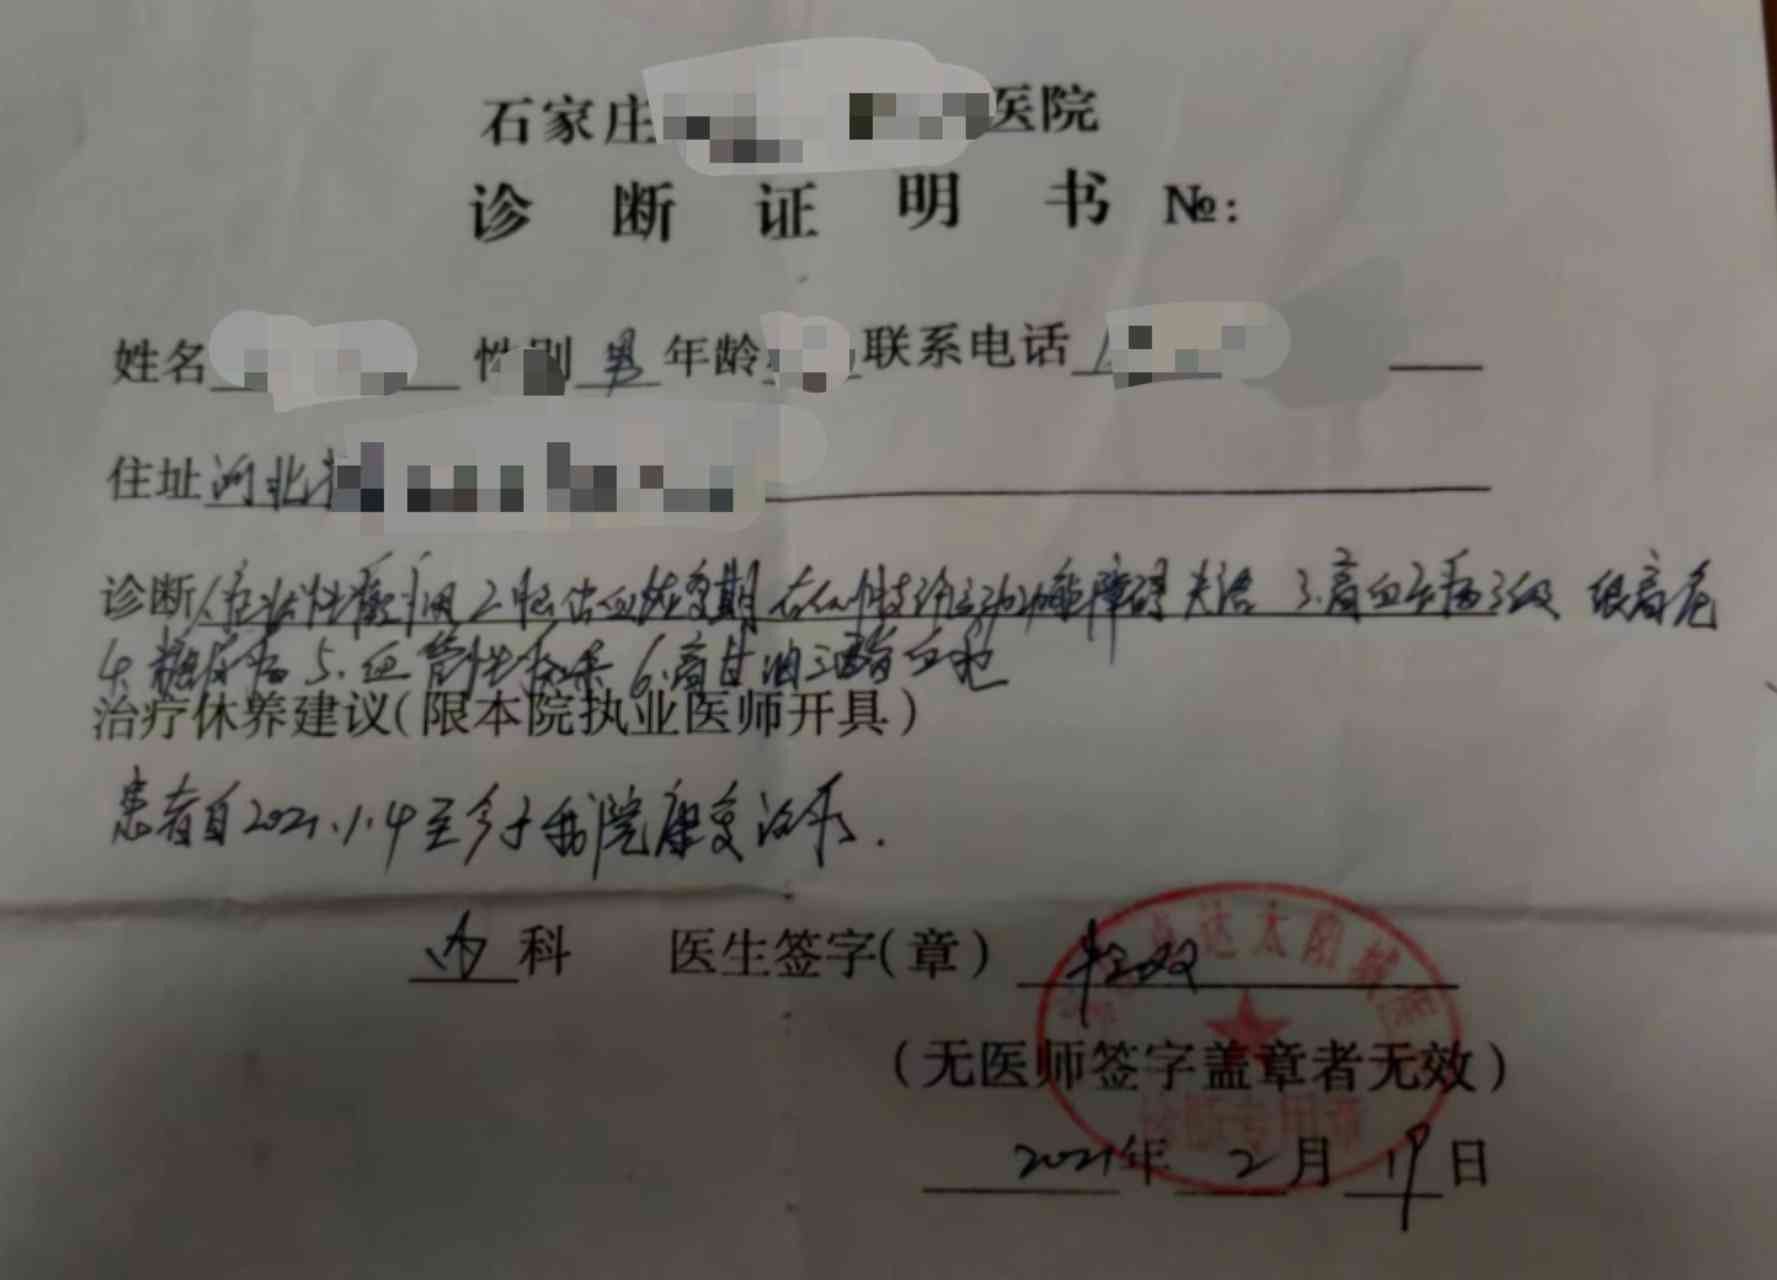 石家庄 医院
诊断证明书 №:
姓名 性别 男 年龄 联系电话
住址 河北
诊断 1.症状性癫痫 2.脑出血恢复期 右侧肢体运动功能障碍 失语 3.高血压病3级 很高危
4.糖尿病 5.血管性痴呆 6.高甘油三酯血症
治疗休养建议(限本院执业医师开具)
患者自2021.1.4至今于我院康复治疗.
内 科 医生签字(章)
达太阳城
(无医师签字盖章者无效)
诊断专用章
2021年 2月 19日